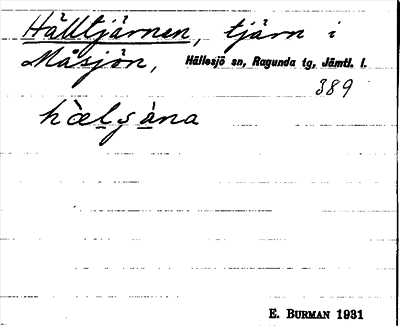 Hälltjärnen, tjärn i
Måsjön, Hällesjö sn, Ragunda tg, Jämtl. l.
389
hæ̀lʂàna
E. BURMAN 1931